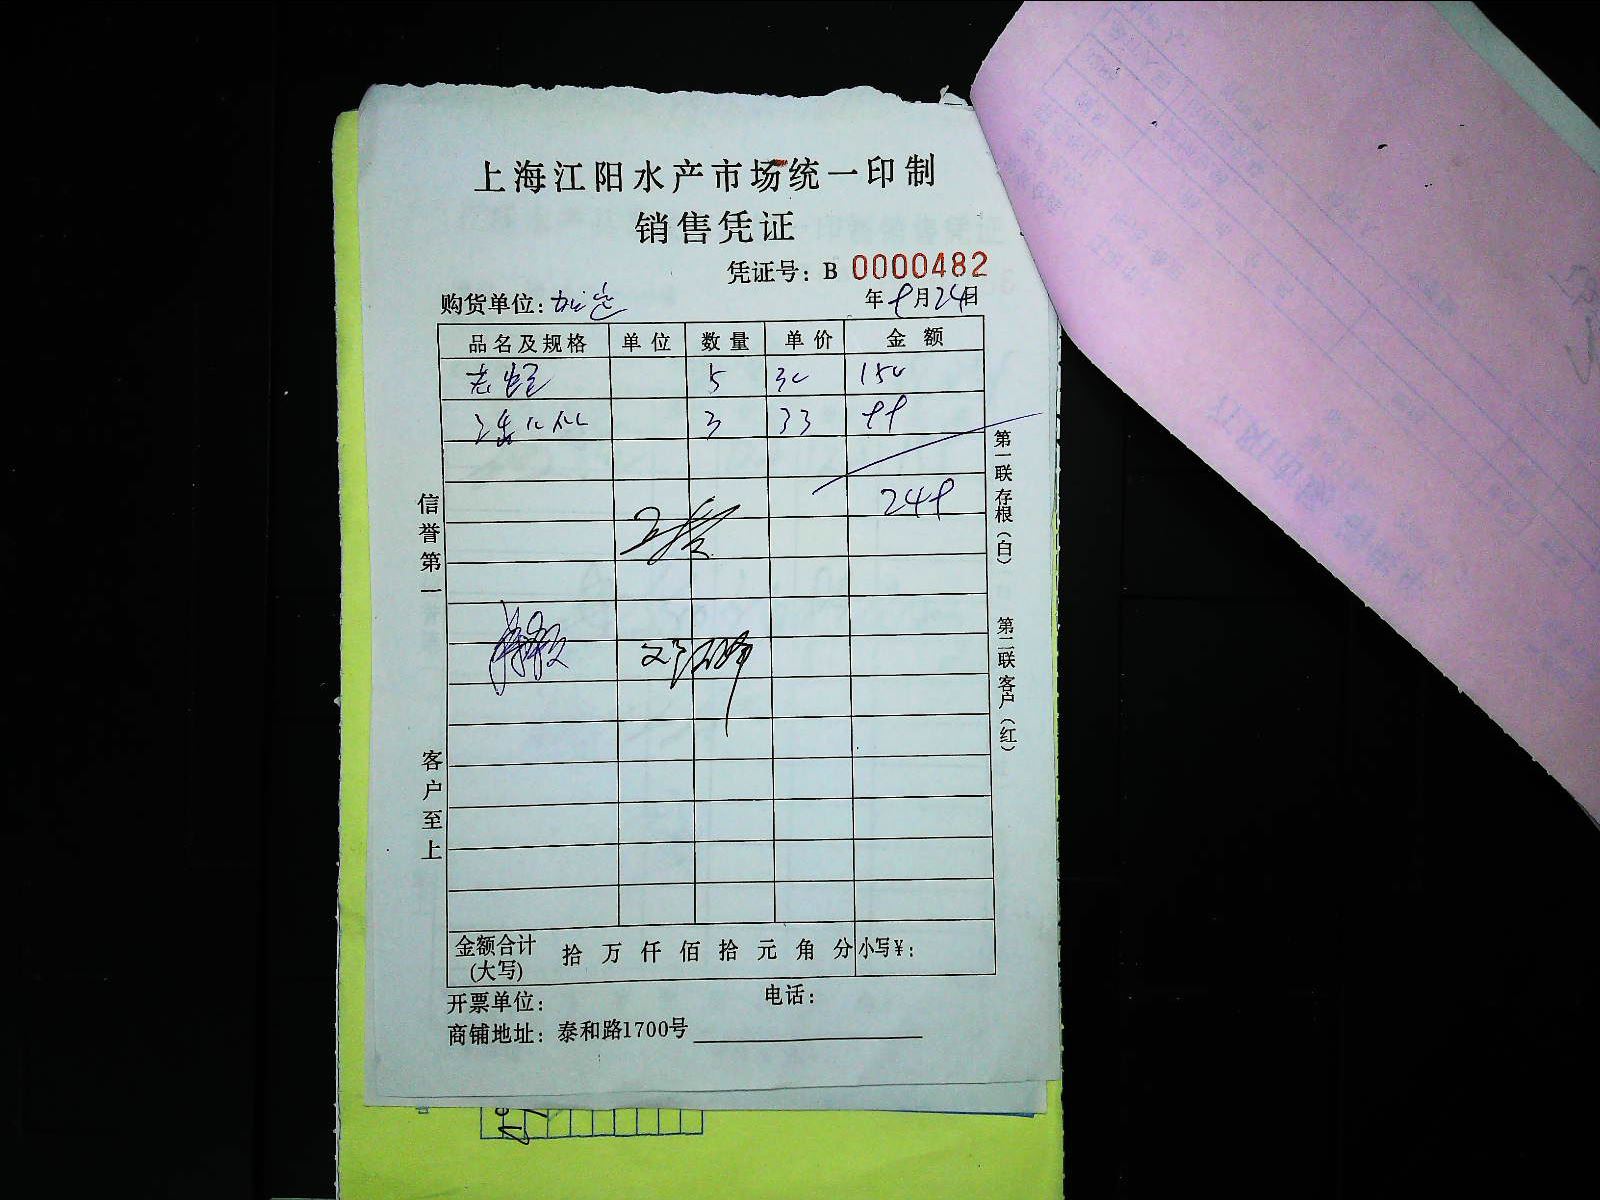 上海江阳水产市场统一印制
销售凭证
凭证号：B 0000482
购货单位： 年9月24日
品名及规格 单位 数量 单价 金额
5 30 150
3 33 99
249
信誉第一
客户至上
第一联存根（白）
第二联客户（红）
金额合计（大写） 拾 万 仟 佰 拾 元 角 分 小写¥：
开票单位： 电话：
商铺地址：泰和路1700号